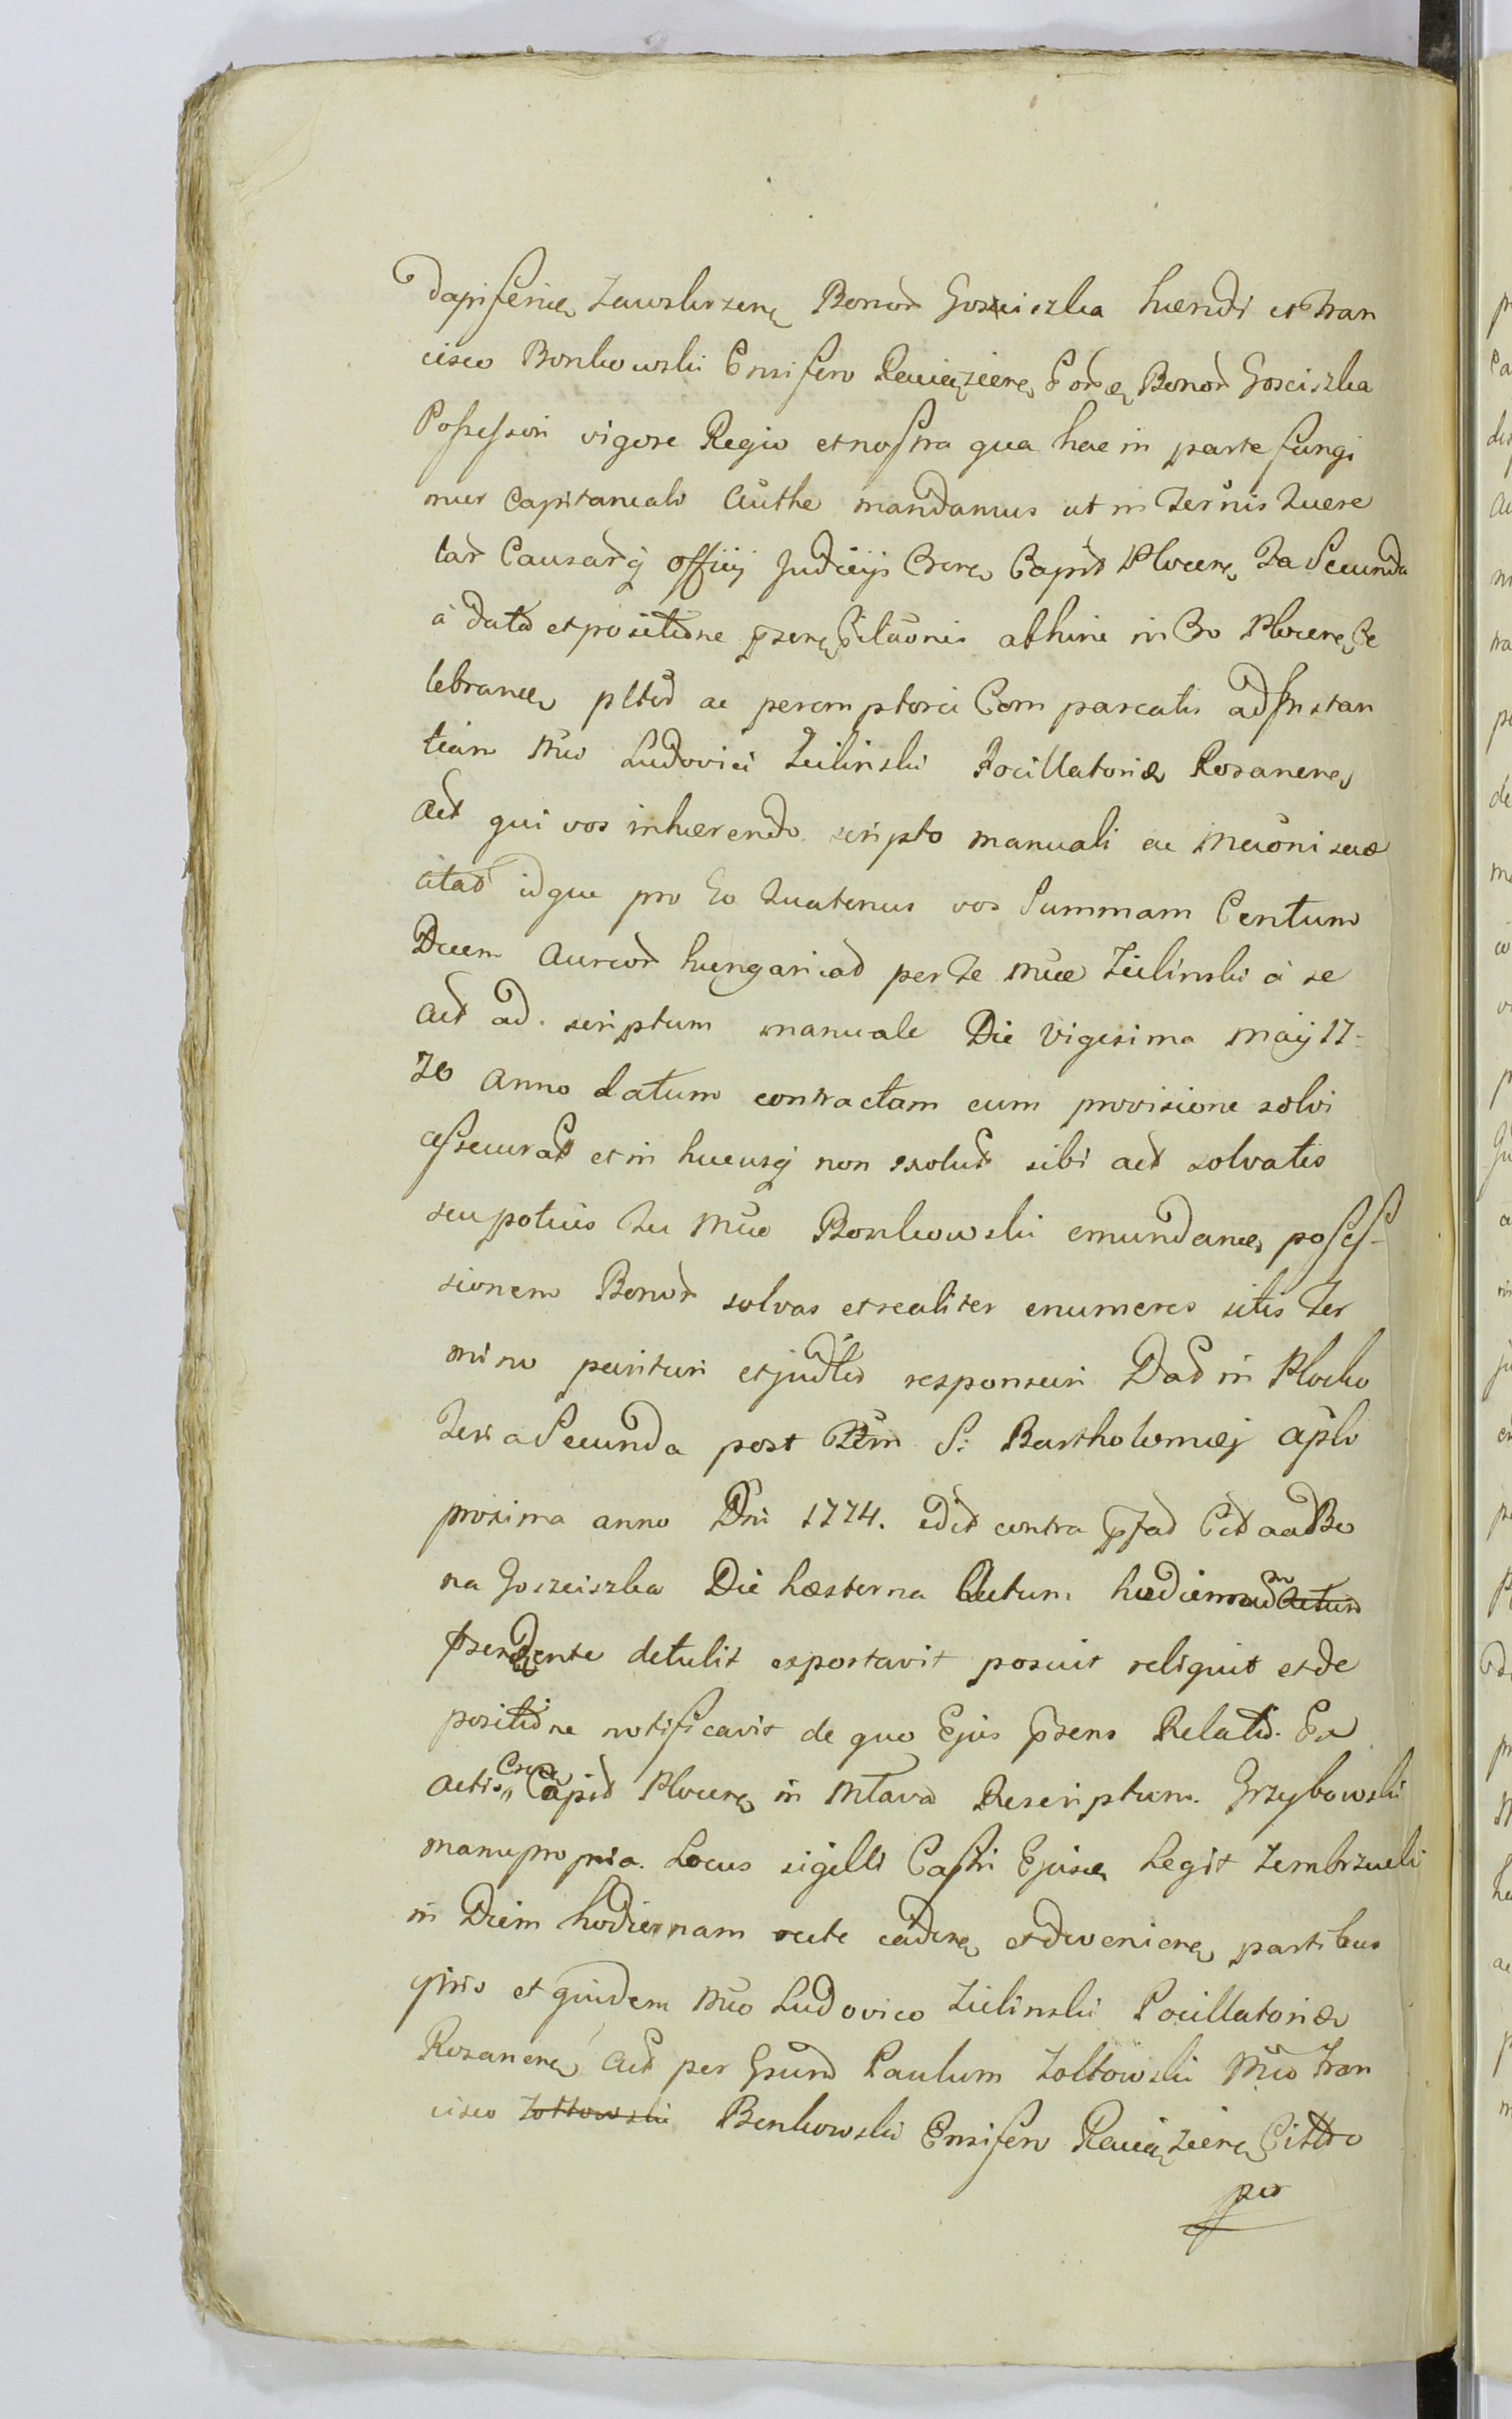 Dapiferidæ Zawskrzen Bonor Gosciszka hærdi et Fran
cisco Bonkowski Ensifero Raciązien Eord Bonor Gosciszka
Possessori vigore Regio et nostra qua hac in parte fungi
mur Capitaneali Authe mandamus ut in Ternis Quere
lar Causarq Officij Judicijs Cren Capit Plocen Fa Secunda
à data et positione pren Citaonis abhinc in Cro Plocen Ce
lebran pltd ac peremptorie Compareatis ad Instan
tiam Mci Ludovici Zielinski Pocillatoridæ Rozanen
Act qui vos inhærendo scripto manuali ac Mcioni suæ
citat idque pro Eo Quatenus vos Summam Centum
Decem Aureor hungaricad per Te Mce Zielinski à se
Act ad scriptum manuale Die Vigesima Maij 17=
70 Anno datum contractam cum provisione solvi
assecurat et in hucusq non exolut sibi act solvatis
seu potius Tu Mce Bonkowski emundan posses-
sionem Bonor solvas et realiter enumeres sitis Ter
mino parituri et judtr responsuri Dat in Plocko
Feria Secunda post Ftm S: Bartholomæj Apli
proxima anno Dni 1774. edit contra pftad Cit ad Bo
na Gosciszka Die hæsterna Actum hodiernum
præcedente detulit exportavit posuit reliquit et de
positione notificavit de quo Ejus prsens Relatio. Ex
Actis Cren Capit Plocen in Mlava Rescriptum. Grzybowski
manupropria. Locus sigilli Castri Ejusd Legit Zembrzuski
in Diem hodiernam recte caden et devenien partibus
ptis et quidem Mco Ludovico Zielinski Pocillatoridæ
Rozanen Act per Gsum Paulum Zoltowski Mco Fran
cisco Zoltowski Bonkowski Ensifero Raciązien Citto
per